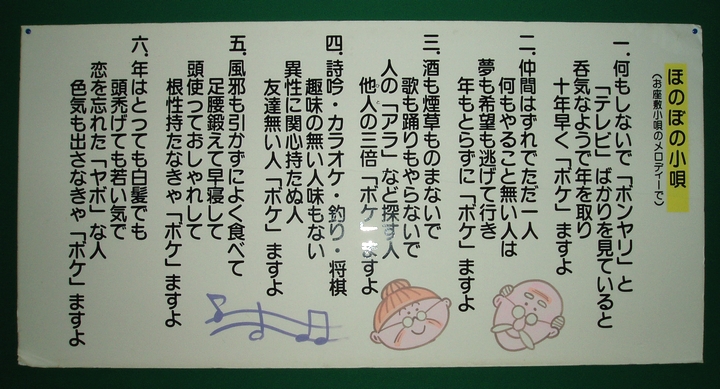 ほのぼの小唄
(お座敷小唄のメロディーで)
一.何もしないで「ボンヤリ」と
「テレビ」ばかりを見ていると
呑気なようで年を取り
十年早く「ボケ」ますよ
二.仲間はずれでただ一人
何もやること無い人は
夢も希望も逃げて行き
年もとらずに「ボケ」ますよ
三.酒も煙草ものまないで
歌も踊りもやらないで
人の「アラ」など探す人
他人の三倍「ボケ」ますよ
四.詩吟・カラオケ・釣り・将棋
趣味の無い人味もない
異性に関心持たぬ人
友達無い人「ボケ」ますよ
五.風邪も引かずによく食べて
足腰鍛えて早寝して
頭使つておしゃれして
根性持たなきゃ「ボケ」ますよ
六.年はとっても白髪でも
頭禿げても若い気で
恋を忘れた「ヤボ」な人
色気も出さなきゃ「ボケ」ますよ